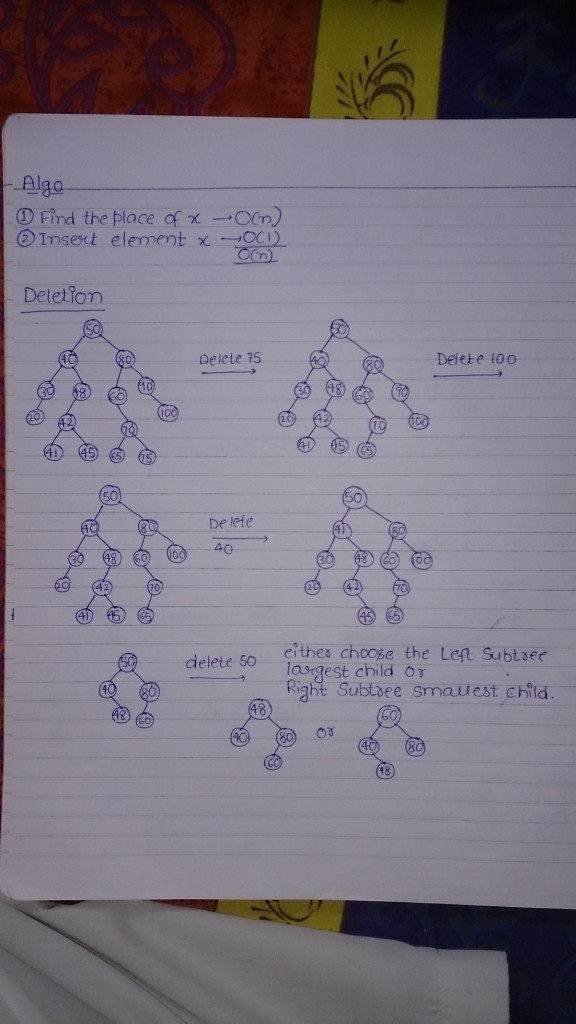 Algo
① Find the place of x → O(n)
② Insert element x → O(1)
O(n)
Deletion
50
40 80
30 48 60 90
20 42 70 100
41 45 65 75
Delete 75
50
40 80
30 48 60 90
20 42 70 100
41 45 65
Delete 100
50
40 80
30 48 60 100
20 42 70
41 45 65
Delete
40
50
41 80
30 48 60 100
20 42 70
45 65
50
40 80
48 60
delete 50
either choose the Left Subtree
largest child or
Right Subtree smallest child.
48
40 80
60
or
60
40 80
48